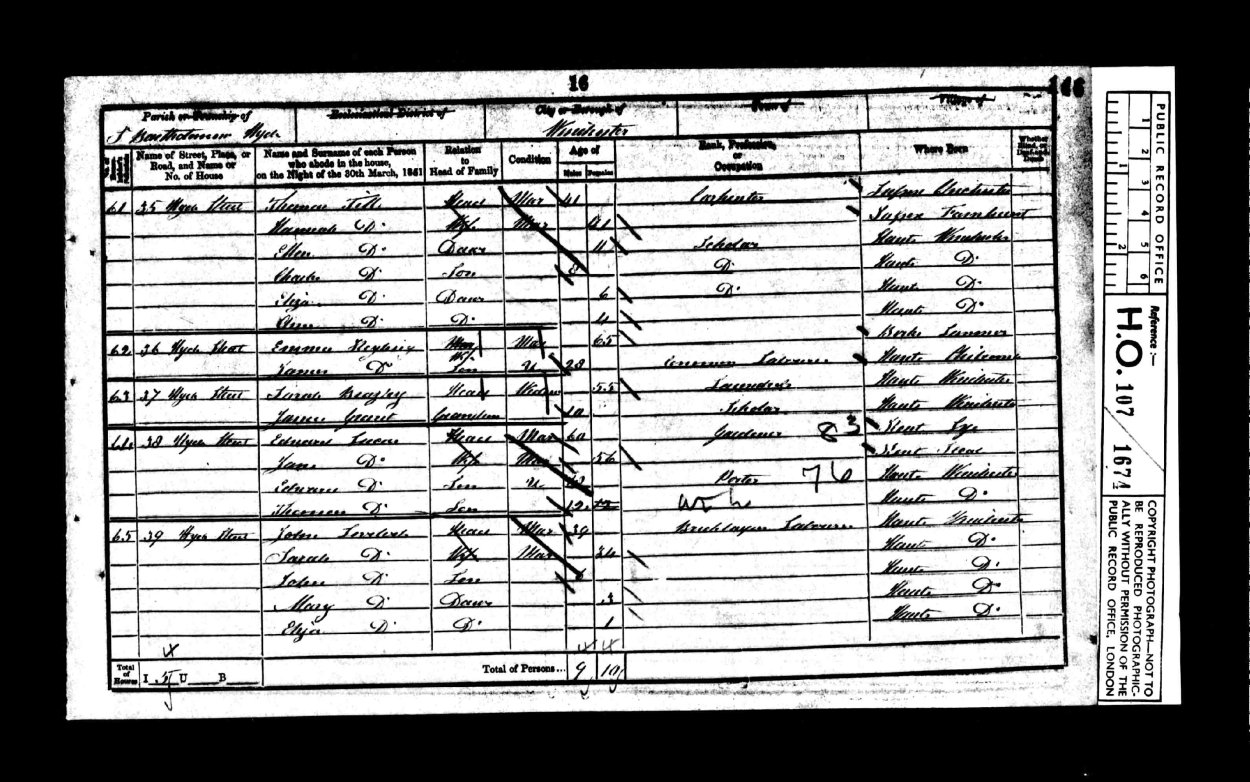 16
166
Parish or Township of
Ecclesiastical District of
City or Borough of
Town of
Village of
St Bartholomew Hyde
Winchester
Name of Street, Place, or Road, and Name or No. of House
Name and Surname of each Person who abode in the house, on the Night of the 30th March, 1851
Relation to Head of Family
Condition
Age of
Males Females
Rank, Profession, or Occupation
Where Born
61 35 Hyde Street Thomas Head Mar 41 Carpenter Sussex Chichester
Hannah Do Wife Mar 41 Sussex
Ellen Do Daur 11 Scholar Hants Winchester
Charles Do Son 8 Do Hants Do
Eliza Do Daur 6 Do Hants Do
Do Do 4 Hants Do
62 36 Hyde Street Emma Wife Mar 65 Berks
James Do Son U 28 Common Labourer Hants
63 37 Hyde Street Sarah Head Widow 55 Laundress Hants Winchester
James Grant Grandson 10 Scholar Hants Winchester
64 38 Hyde Street Edward Lucas Head Mar 60 Gardener 83 Kent
Jane Do Wife Mar 56 Kent Deal
Edward Do Son U Porter 76 Hants Winchester
Thomas Do Son 12 12 Hants Do
65 39 Hyde Street John Head Mar 39 Bricklayers Labourer Hants Winchester
Sarah Do Wife Mar 34 Hants Do
John Do Son Hants Do
Mary Do Daur 3 Hants Do
Eliza Do Do 1 Hants Do
4 4 4
Total of Houses I 5 U B
Total of Persons... 9 10
PUBLIC RECORD OFFICE
1 2 3 4 5 6
1 2
Reference :—
H.O. 107 / 1674
COPYRIGHT PHOTOGRAPH—NOT TO BE REPRODUCED PHOTOGRAPHICALLY WITHOUT PERMISSION OF THE PUBLIC RECORD OFFICE, LONDON